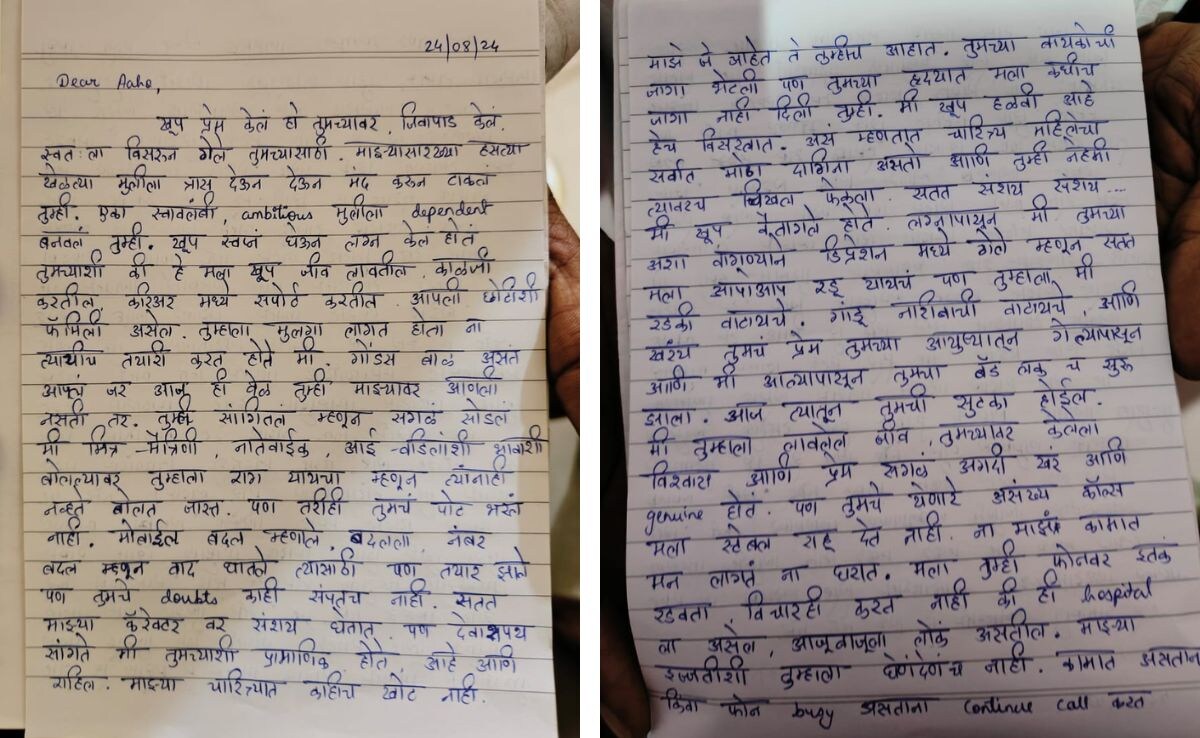 24/08/24
Dear Aaho,
खूप प्रेम केलं हो तुमच्यावर, जिवापाड केलं.
स्वतःला विसरून गेले तुमच्यासाठी. माझ्यासारख्या हसत्या
खेळत्या मुलीला त्रास देऊन देऊन मंद करून टाकलं
तुम्ही. एका स्वावलंबी, ambitious मुलीला dependent
बनवलं तुम्ही. खूप स्वप्नं घेऊन लग्न केलं होतं
तुमच्याशी की हे मला खूप जीव लावतील, काळजी
करतील, करिअर मध्ये सपोर्ट करतील. आपली छोटीशी
फॅमिली असेल. तुम्हाला मुलगा लागत होता ना
त्याचीच तयारी करत होते मी. गोंडस बाळ असतं
आपलं जर आज ही वेळ तुम्ही माझ्यावर आणली
नसती तर. तुम्ही सांगितलं म्हणून सगळं सोडलं
मी मित्र-मैत्रिणी, नातेवाईक, आई-वडिलांशी भावाशी
बोलल्यावर तुम्हाला राग यायचा म्हणून त्यांनाही
नव्हते बोलत जास्त. पण तरीही तुमचं पोट भरलं
नाही. मोबाईल बदल म्हणाले, बदलला, नंबर
बदल म्हणून वाद घातले त्यासाठी पण तयार झाले
पण तुमचे doubts काही संपतच नाही. सतत
माझ्या कॅरेक्टर वर संशय घेतात. पण देवाशपथ
सांगते मी तुमच्याशी प्रामाणिक होते, आहे आणि
राहिल. माझ्या चारित्र्यात काहीच खोट नाही.
माझे जे आहेत ते तुम्हीच आहात. तुमच्या बायकोची
जागा भेटली पण तुमच्या हृदयात मला कधीच
जागा नाही दिली तुम्ही. मी खूप हळवी आहे
हेच विसरलात. असं म्हणतात चारित्र्य महिलेचा
सर्वात मोठा दागिना असतो आणि तुम्ही नेहमी
त्यावरच चिखल फेकला. सतत संशय संशय....
मी खूप वैतागले होते. लग्नापासून मी तुमच्या
अशा वागण्याने डिप्रेशन मध्ये गेले म्हणून सतत
मला आपोआप रडू यायचं पण तुम्हाला मी
रडकी वाटायचे. गांडू नशिबाची वाटायचे, आणि
खरंय तुमचं प्रेम तुमच्या आयुष्यातून गेल्यापासून
आणि मी आल्यापासून तुमचा बॅड लक च सुरू
झाला. आज त्यातून तुमची सुटका होईल.
मी तुम्हाला लावलेले जीव, तुमच्यावर केलेला
विश्वास आणि प्रेम सगळं अगदी खरं आणि
genuine होतं. पण तुमचे येणारे असंख्य कॉल्स
मला स्टेबल राहू देत नाही. ना माझं कामात
मन लागतं ना घरात. मला तुम्ही फोनवर इतकं
रडवता, विचारही करत नाही की ही hospital
ला असेल, आजूबाजूला लोकं असतील. माझ्या
इज्जतीशी तुम्हाला घेणंदेणंच नाही. कामात असताना
किंवा फोन busy असताना continue call करत